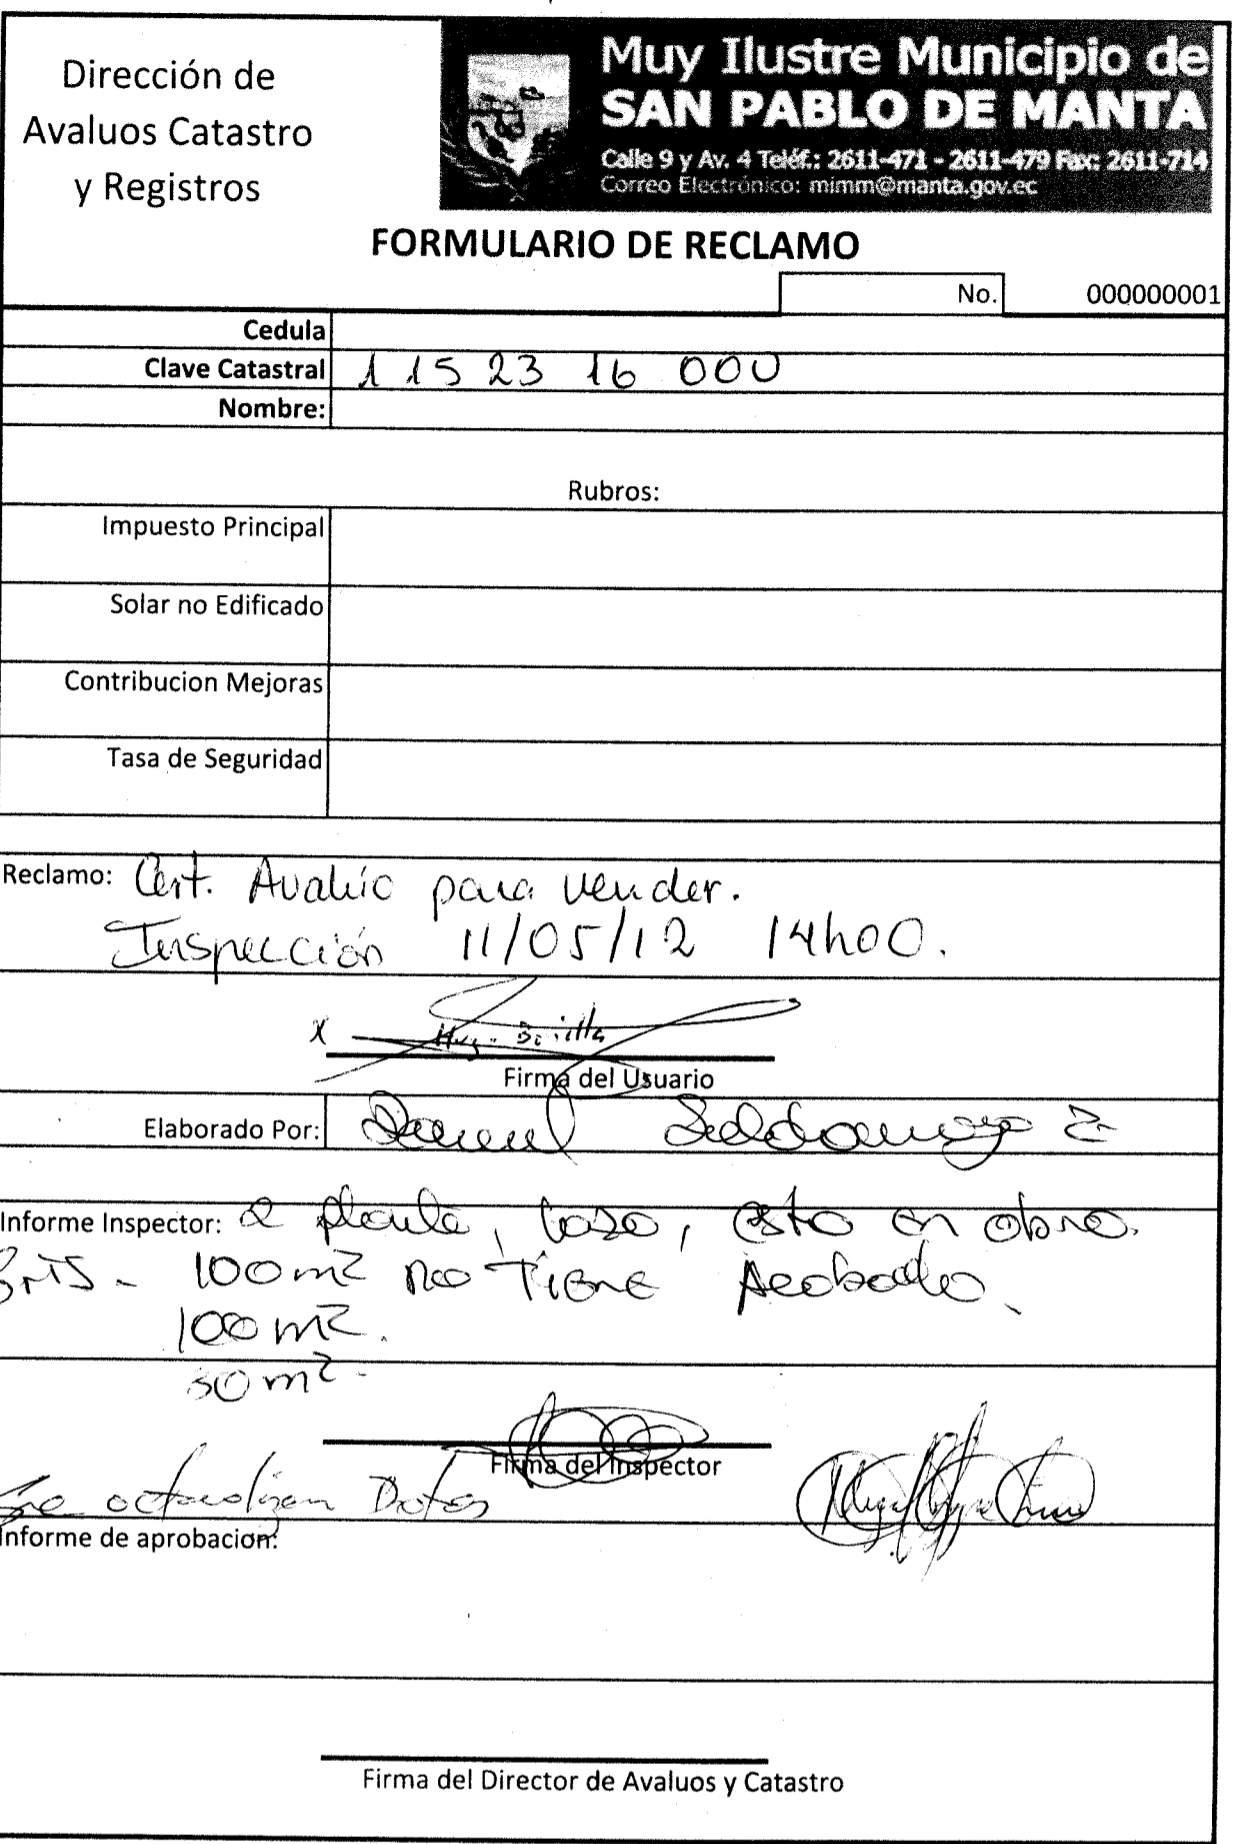 Dirección de
Avaluos Catastro
y Registros
Muy Ilustre Municipio de
SAN PABLO DE MANTA
Calle 9 y Av. 4 Teléf.: 2611-471 - 2611-479 Fax: 2611-714
Correo Electrónico: mimm@manta.gov.ec
FORMULARIO DE RECLAMO
No. 000000001
Cedula
Clave Catastral 1 15 23 16 000
Nombre:
Rubros:
Impuesto Principal
Solar no Edificado
Contribucion Mejoras
Tasa de Seguridad
Reclamo: Cert. Avalúo para vender.
Inspección 11/05/12 14h00.
X
Firma del Usuario
Elaborado Por:
Informe Inspector: 2 planta, loza, esta en obra.
100 m2 no Tiene Acabado.
100 m2.
50 m2.
Firma del Inspector
Se actualizan Datos
Informe de aprobacion:
Firma del Director de Avaluos y Catastro